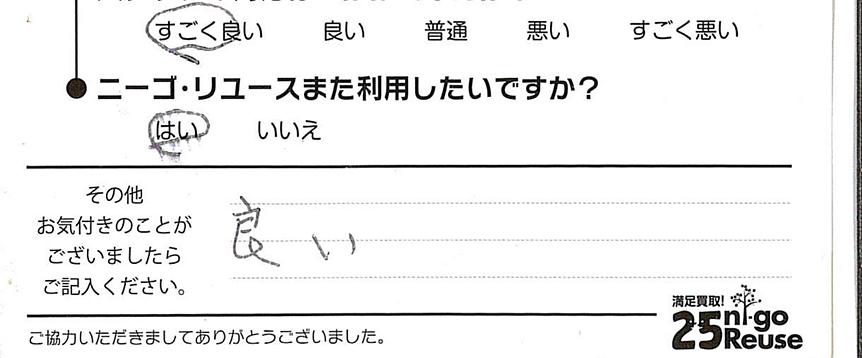 すごく良い 良い 普通 悪い すごく悪い
ニーゴ・リユースまた利用したいですか?
はい いいえ
その他
お気付きのことが
ございましたら
ご記入ください。
良い
ご協力いただきましてありがとうございました。
満足買取!
25 ni-go
Reuse